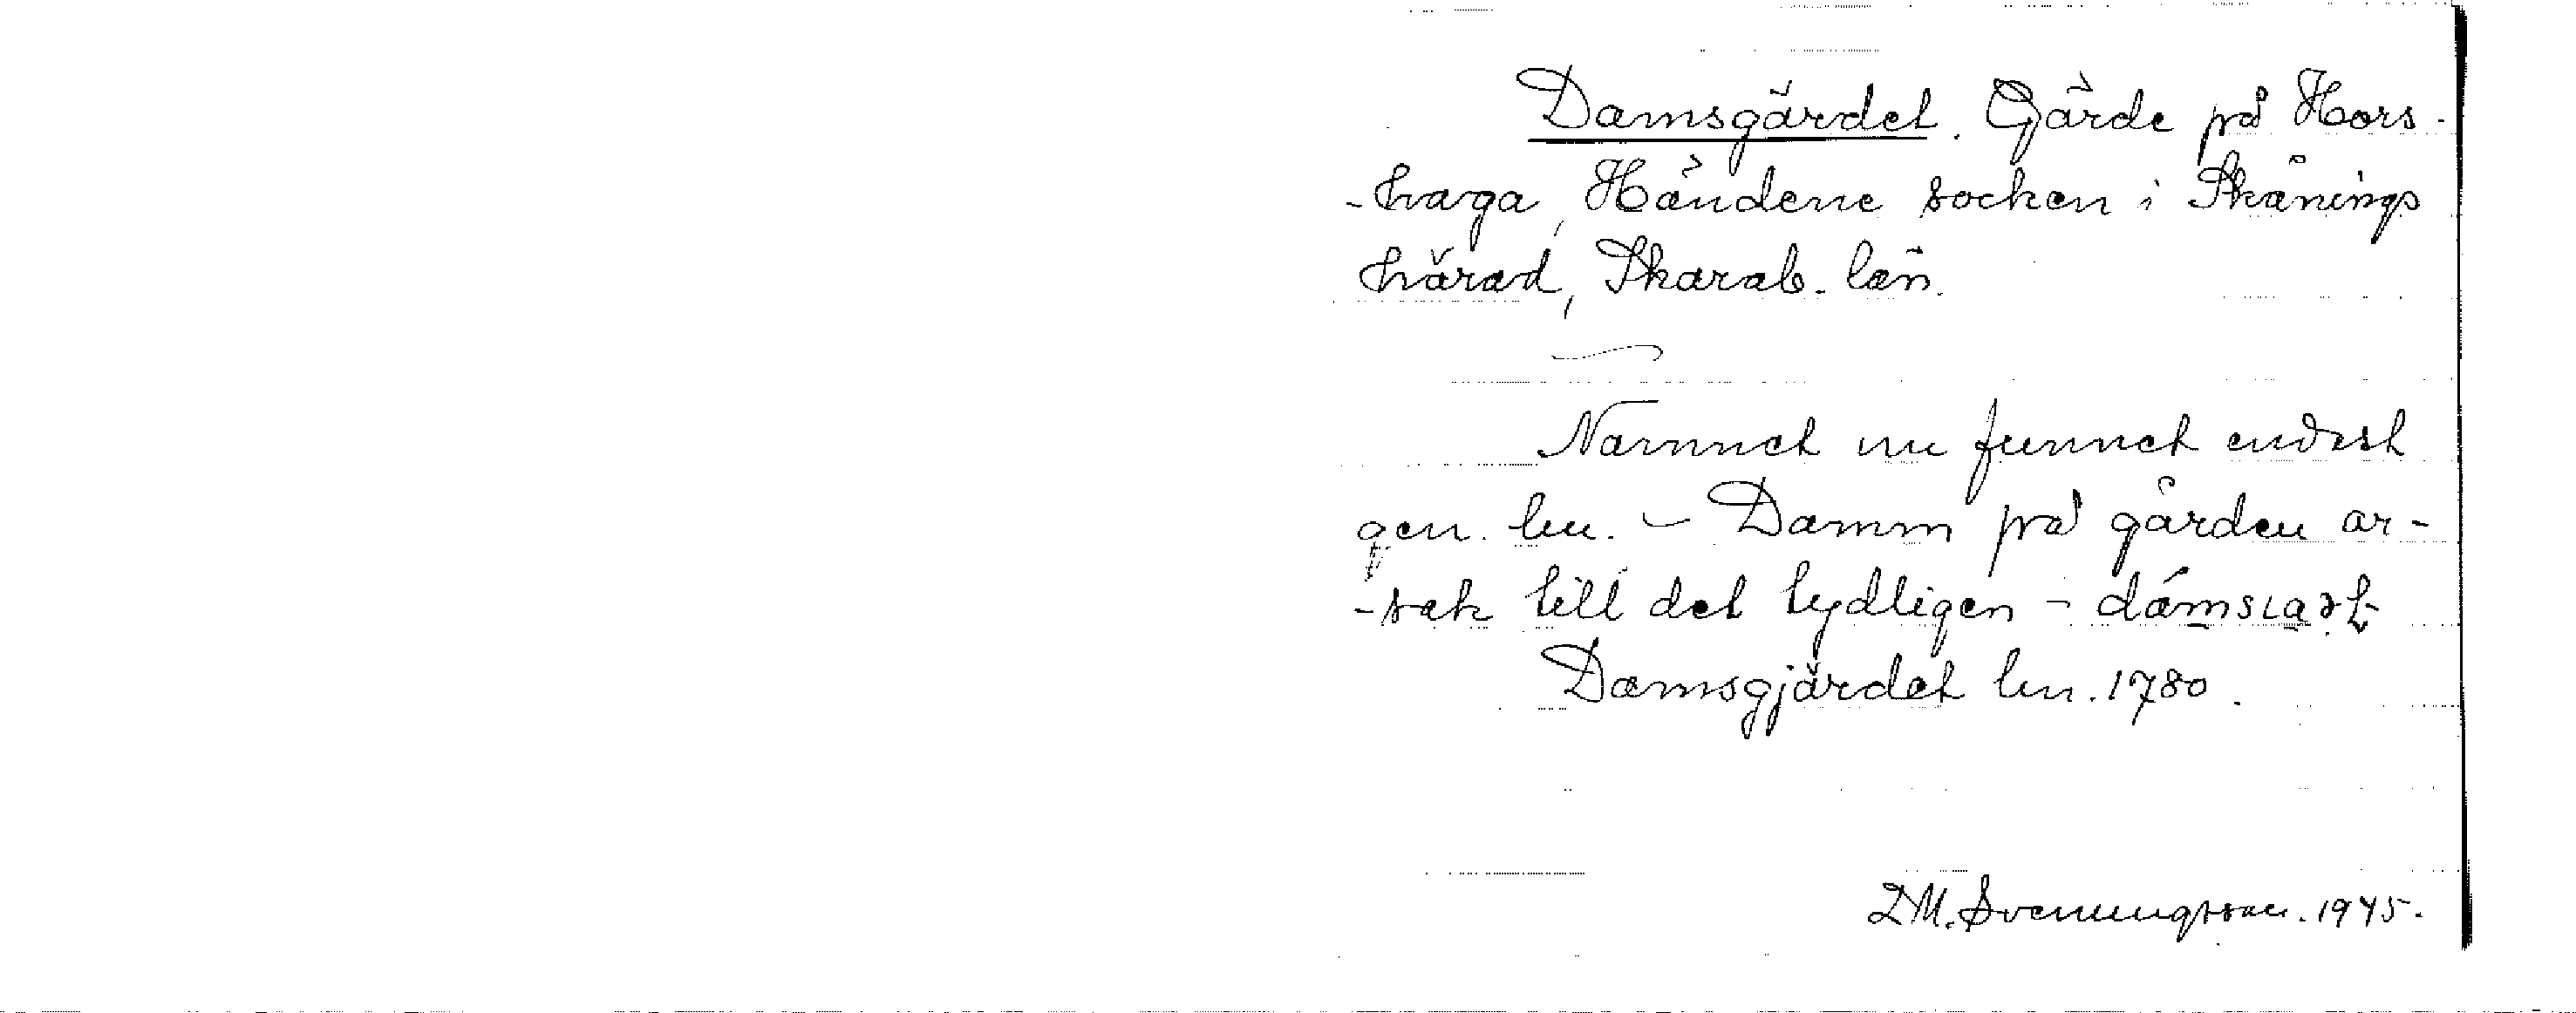 Damsgärdet. Gärde på Hors-
-haga, Händene socken i Skånings
härad, Skarab. län.
Namnet nu funnet endast
gen. lm. - Damm på gården or-
-sak till det tydligen -
Damsgjärdet lm. 1780.
D.M. Svenungsson. 1945.